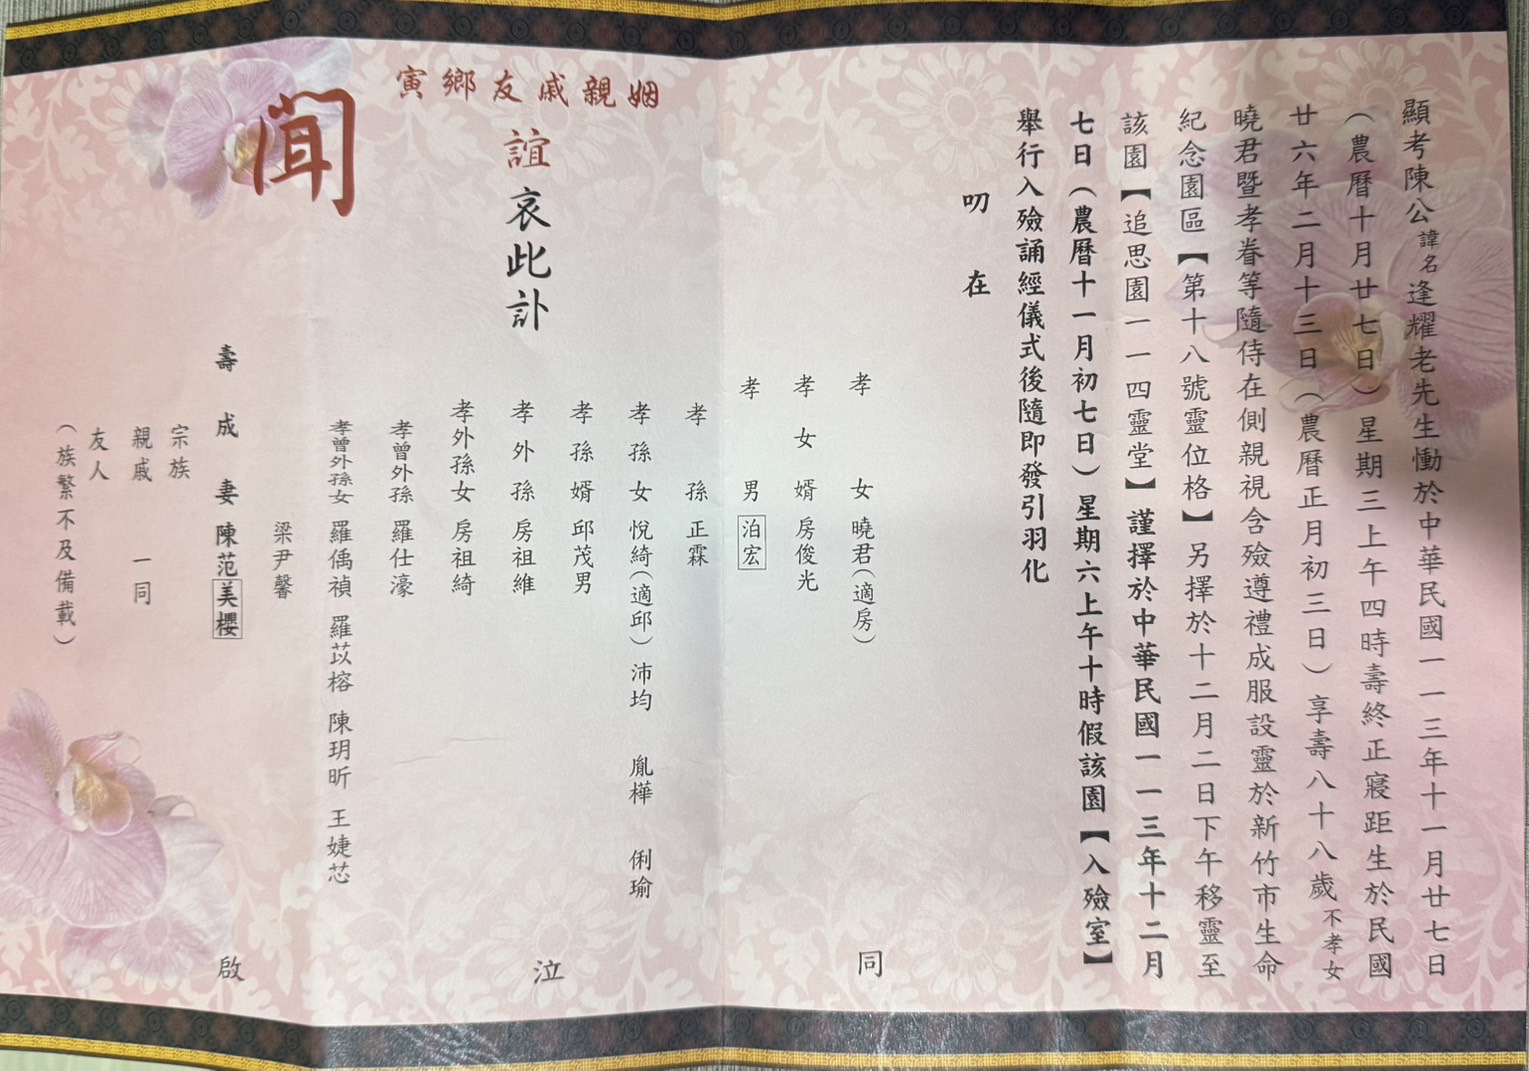 顯考陳公諱名逢耀老先生慟於中華民國一一三年十一月廿七日
（農曆十月廿七日）星期三上午四時壽終正寢距生於民國
廿六年二月十三日（農曆正月初三日）享壽八十八歲不孝女
曉君暨孝眷等隨侍在側親視含殮遵禮成服設靈於新竹市生命
紀念園區【第十八號靈位格】另擇於十二月二日下午移靈至
該園【追思園一一四靈堂】謹擇於中華民國一一三年十二月
七日（農曆十一月初七日）星期六上午十時假該園【入殮室】
舉行入殮誦經儀式後隨即發引羽化
叨在
孝女 曉君（適房）
同
孝女婿 房俊光
孝男 泊宏
孝孫 正霖
孝孫女 悅綺（適邱） 沛均 胤樺 俐瑜
孝孫婿 邱茂男
孝外孫 房祖維
孝外孫女 房祖綺
孝曾外孫 羅仕濠
孝曾外孫女 羅偊禎 羅苡榕 陳玥昕 王婕芯
梁尹馨
泣
姻親戚友鄉寅
誼哀此訃
聞
壽成妻 陳范美櫻
啟
宗族
親戚 一同
友人
（族繁不及備載）